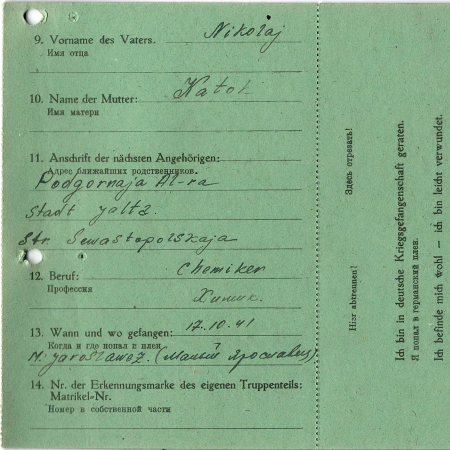 9. Vorname des Vaters. Nikolaj
Имя отца
10. Name der Mutter:
Имя матери
11. Anschrift der nächsten Angehörigen:
Адрес ближайших родственников.
Podgornaja
Stadt Jalta
Str. Sewastopolskaja
12. Beruf: Chemiker
Профессия Химик.
13. Wann und wo gefangen: 17.10.41
Когда и где попал в плен
M. Jaroslawez. (Малый Ярославец)
14. Nr. der Erkennungsmarke des eigenen Truppenteils:
Matrikel-Nr.
Номер в собственной части
Hier abtrennen! Здесь отрезать!
Ich bin in deutsche Kriegsgefangenschaft geraten.
Я попал в германский плен.
Ich befinde mich wohl — ich bin leicht verwundet.